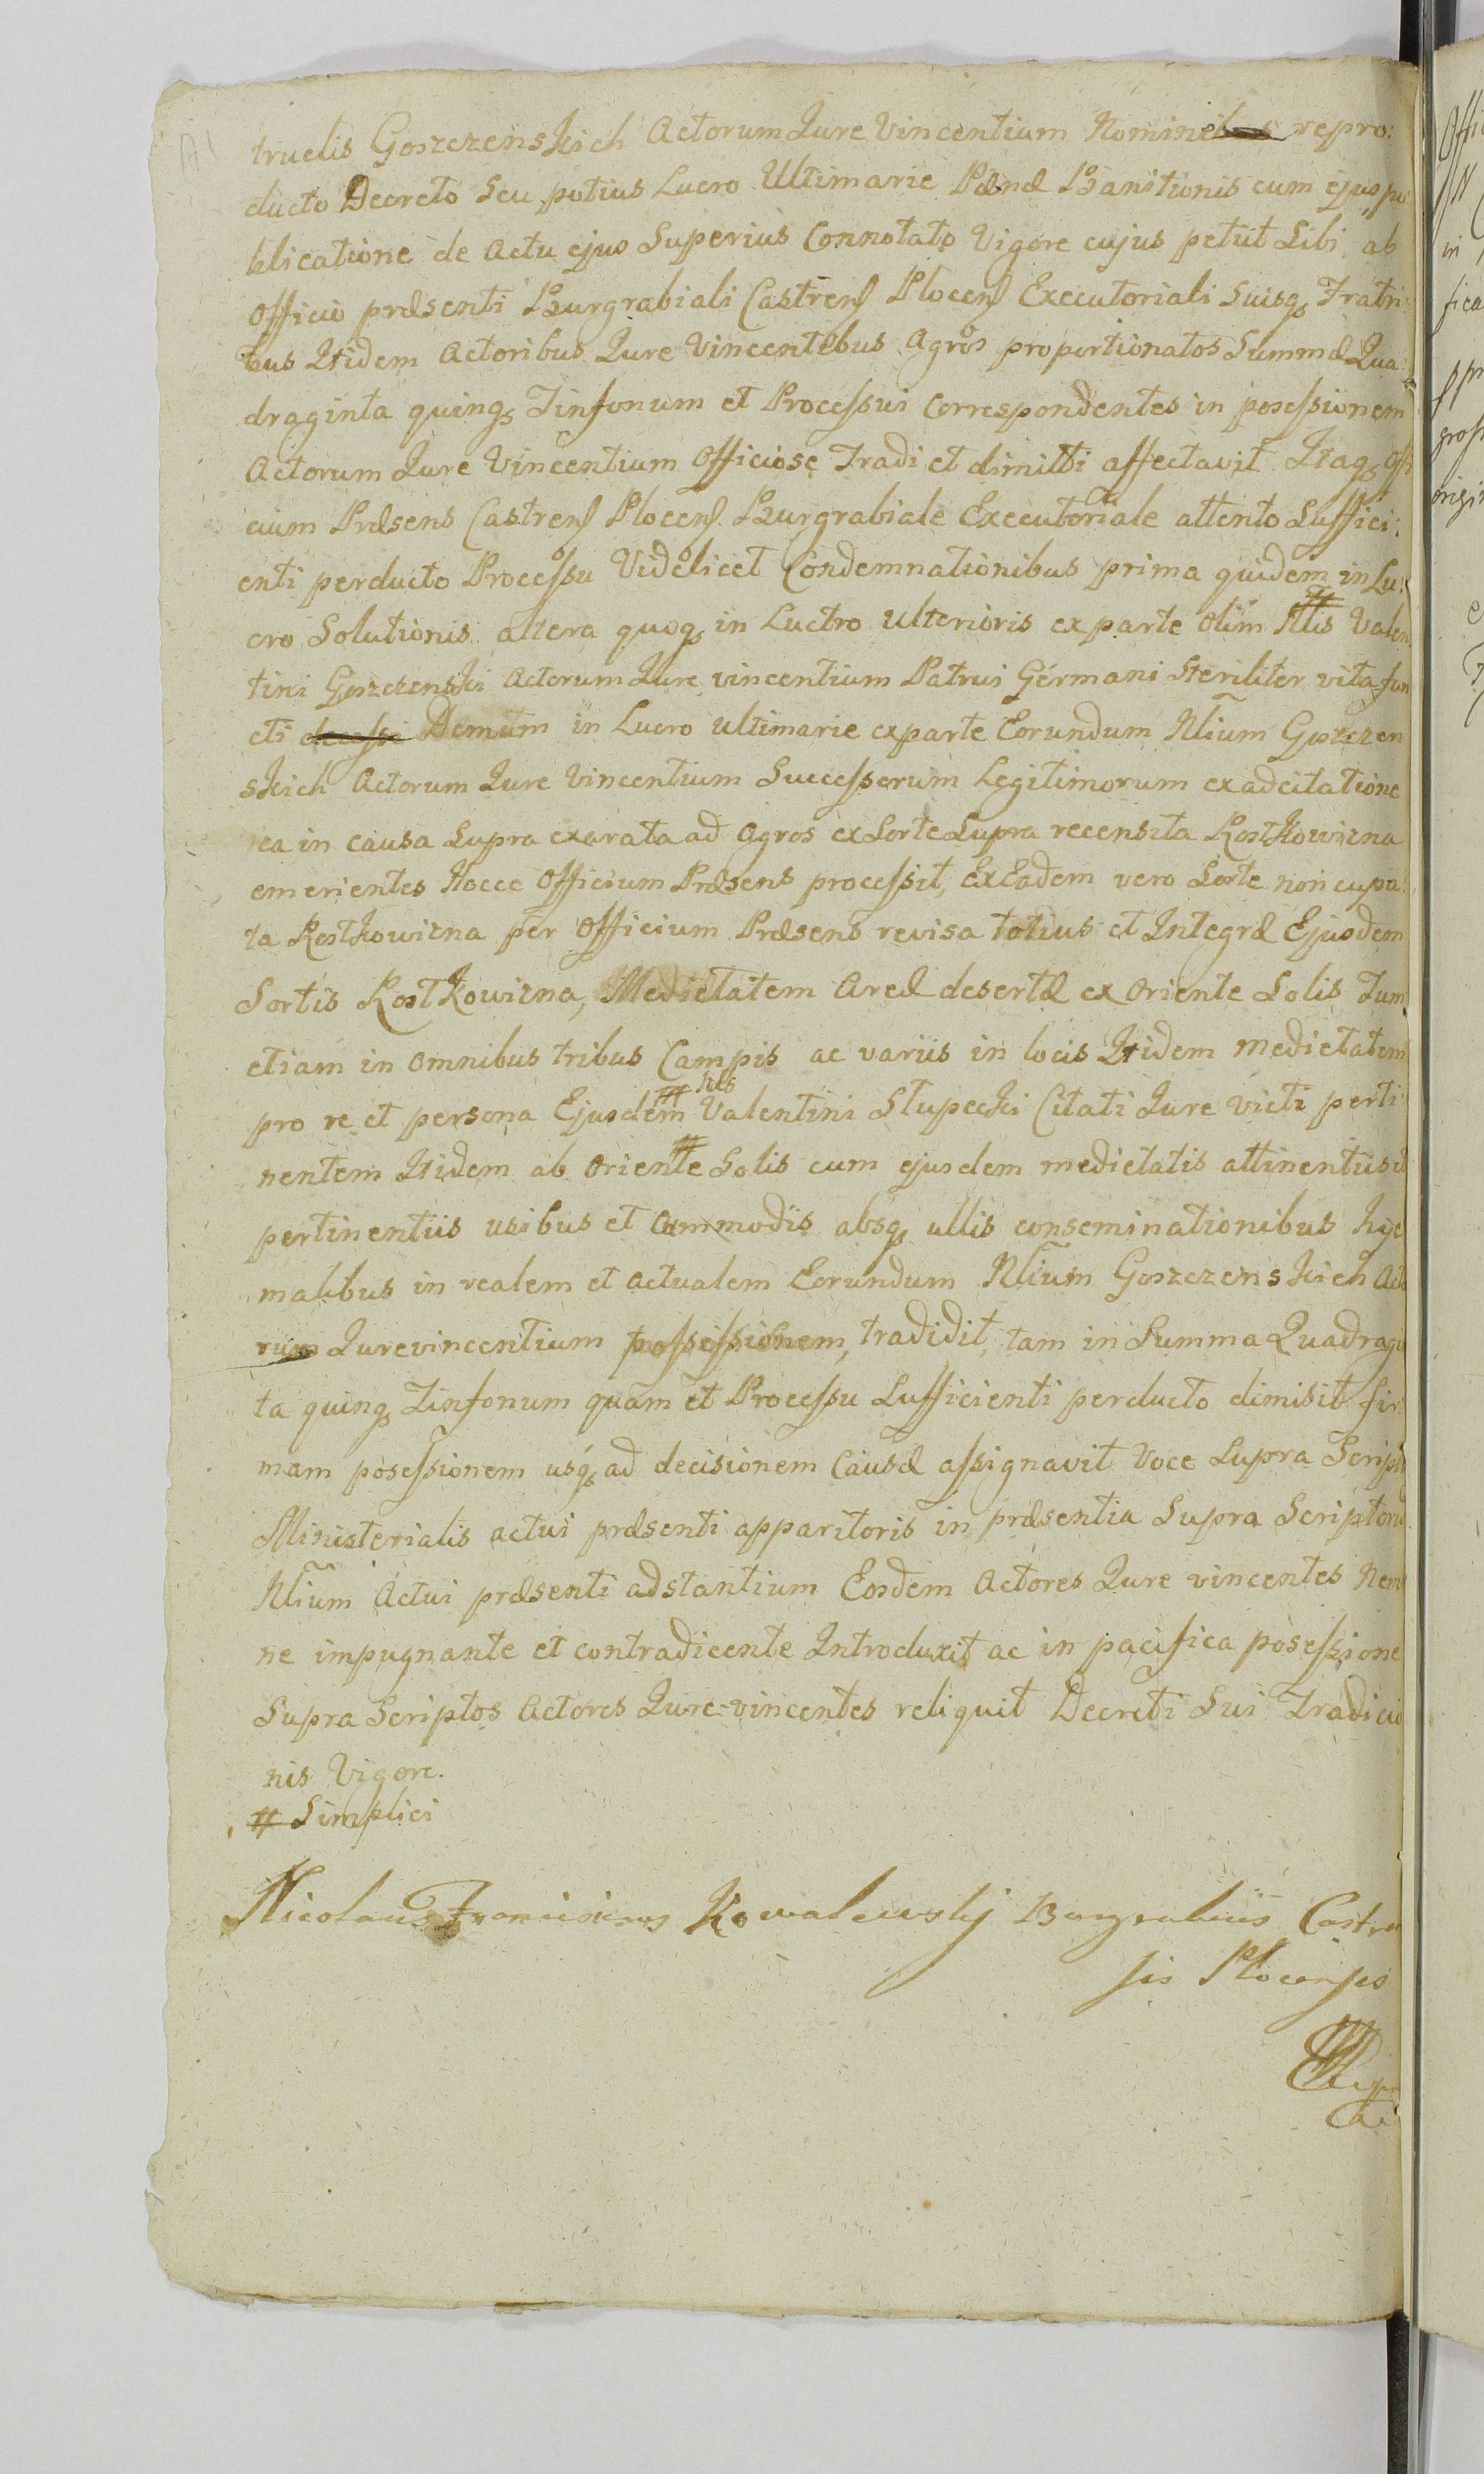 truelis Goszczenskich Actorum Jure Vincentium Nomine repro:
ducto Decreto Seu potius Lucro Ultimarie Pænæ Banitionis cum ejus pu
blicatione de Actu ejus Superius Connotato Vigore cujus petiit Sibi ab
Officio præsenti Burgrabiali Castrens Plocens Executoriali Suisq Fratri:
bus Itidem Actoribus Jure Vincentibus Agros proportionatos Summæ Qua
draginta quinq Tinfonum et Processui Correspondentes in posessionem
Actorum Jure Vincentium Officiose Tradi et dimitti affectavit Itaq Offi
cium Præsens Castrens Plocens Burgrabiale Executoriale attento Suffici:
enti perducto Processu Videlicet Condemnationibus prima quidem in Lu:
cro Solutionis altera quoq in Luctro ulterioris ex parte Olim Nlis Valen
tini Goszczenski Actorum Jure vincentium Patrui Germani Steriliter vita fun
cti Demum in Lucro ultimarie ex parte Eorundum Nlium Goszczen
skich Actorum Jure Vincentium Successorum Legitimorum ex adcitatione
ea in causa Supra exarata ad Agros ex Sorte Supra recensita Rostkowizna
emerientes Hocce Officium Præsens processit, Ex Eadem vero Sorte noncupa:
ta Rostkowizna per Officium Præsens revisa totius et Integræ Ejusdem
Sortis Rostkowizna, Medietatem Areæ desertæ ex Oriente Solis Tum
etiam in omnibus tribus Campis ac variis in locis Itidem medietatem
pro re et persona Ejusdem # Nlis Valentini Stupecki Citati Jure victi perti
nentem Itidem ab Oriente Solis cum ejusdem medietatis attinentiis et
pertinentiis usibus et Commodis absq ullis conseminationibus hye
malibus in realem et actualem Eorundum Nlium Goszczenskich Acto
rum Jurevincentium possessionem, tradidit, tam in Summa Quadragin
ta quinq Tinfonum quam et Processu Sufficienti perducto dimisit fir
mam posessionem usq ad decisionem Causæ assignavit Voce Supra Scripti
Ministerialis actui præsenti apparitoris in præsentia Supra Scriptoru
Nlium Actui præsenti adstantium Eosdem Actores Jure vincentes Nemi
ne impugnante et contradicente Introduxit ac in pacifica posessione
Supra Scriptos Actores Jure-vincentes reliquit Decreti Sui Tradicio
nis Vigore.
# Simplici
Nicolaus Franciscus Kowalewskj Burgrabius Castren
sis Plocensis